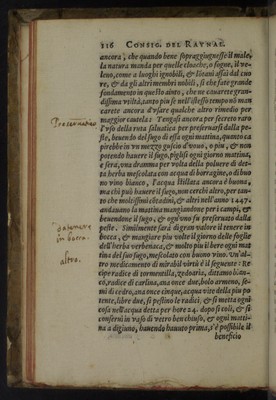 116 CONSIG. DEL RAYNAL.
ancora, che quando bene sopraggiugnesse il male,
la natura manda per quelle cloache, o fogne, il ve-
leno, come a luoghi ignobili, & lōtani assai dal cuo
re, & da gli altri membri nobili, si che fate grande
fondamento in questo aiuto, che ne cauarete gran-
dissima vtilità, tanto piu se nell'istesso tempo nō man
carete ancora d'vsare qualche altro rimedio per
maggior cautela: Tengasi ancora per secreto raro
l'vso della ruta saluatica per preseruarsi dalla pe-
ste, beuendo del sugo di essa ogni mattina, quanto ca
pirebbe in vn mezzo guscio d'vouo, o piu, & non
potendo hauere il sugo, piglisi ogni giorno mattina,
e sera, vna dramma per volta della poluere di det-
ta herba mescolata con acqua di borragine, o di buo
no vino bianco, l'acqua stillata ancora è buona,
ma chi può hauere il sugo, non cerchi altro, per tan-
to che molissimi cittadini, & altri nell'anno 1447.
andauano la mattina mangiandone per i campi, &
beuendone il sugo, & ogni vno fu preseruato dalla
peste. Similmente sarà di gran valore il tenere in
bocca, & mangiare piu volte il giorno delle foglie
dell'herba verbenaca, & molto piu il bere ogni mat
tina del suo sugo, mescolato con buono vino. Vn'al-
tro medicamento di mirabil virtù è il seguente: Re
cipe radice di tormentilla, zedoaria, dittamo bian-
co, radice di carlina, ana once due, bolo armeno, se-
mi di cedro, ana once cinque, acqua vite della piu po
tente, libre due, si pestino le radici, & si metta ogni
cosa nell'acqua detta per hore 24. dopo si coli, & si
conserui in vaso di vetro ben chiuso, & ogni matti-
na a digiuno, hauendo hauuto prima, s'è possibile il
beneficio
in bocca.
altro.